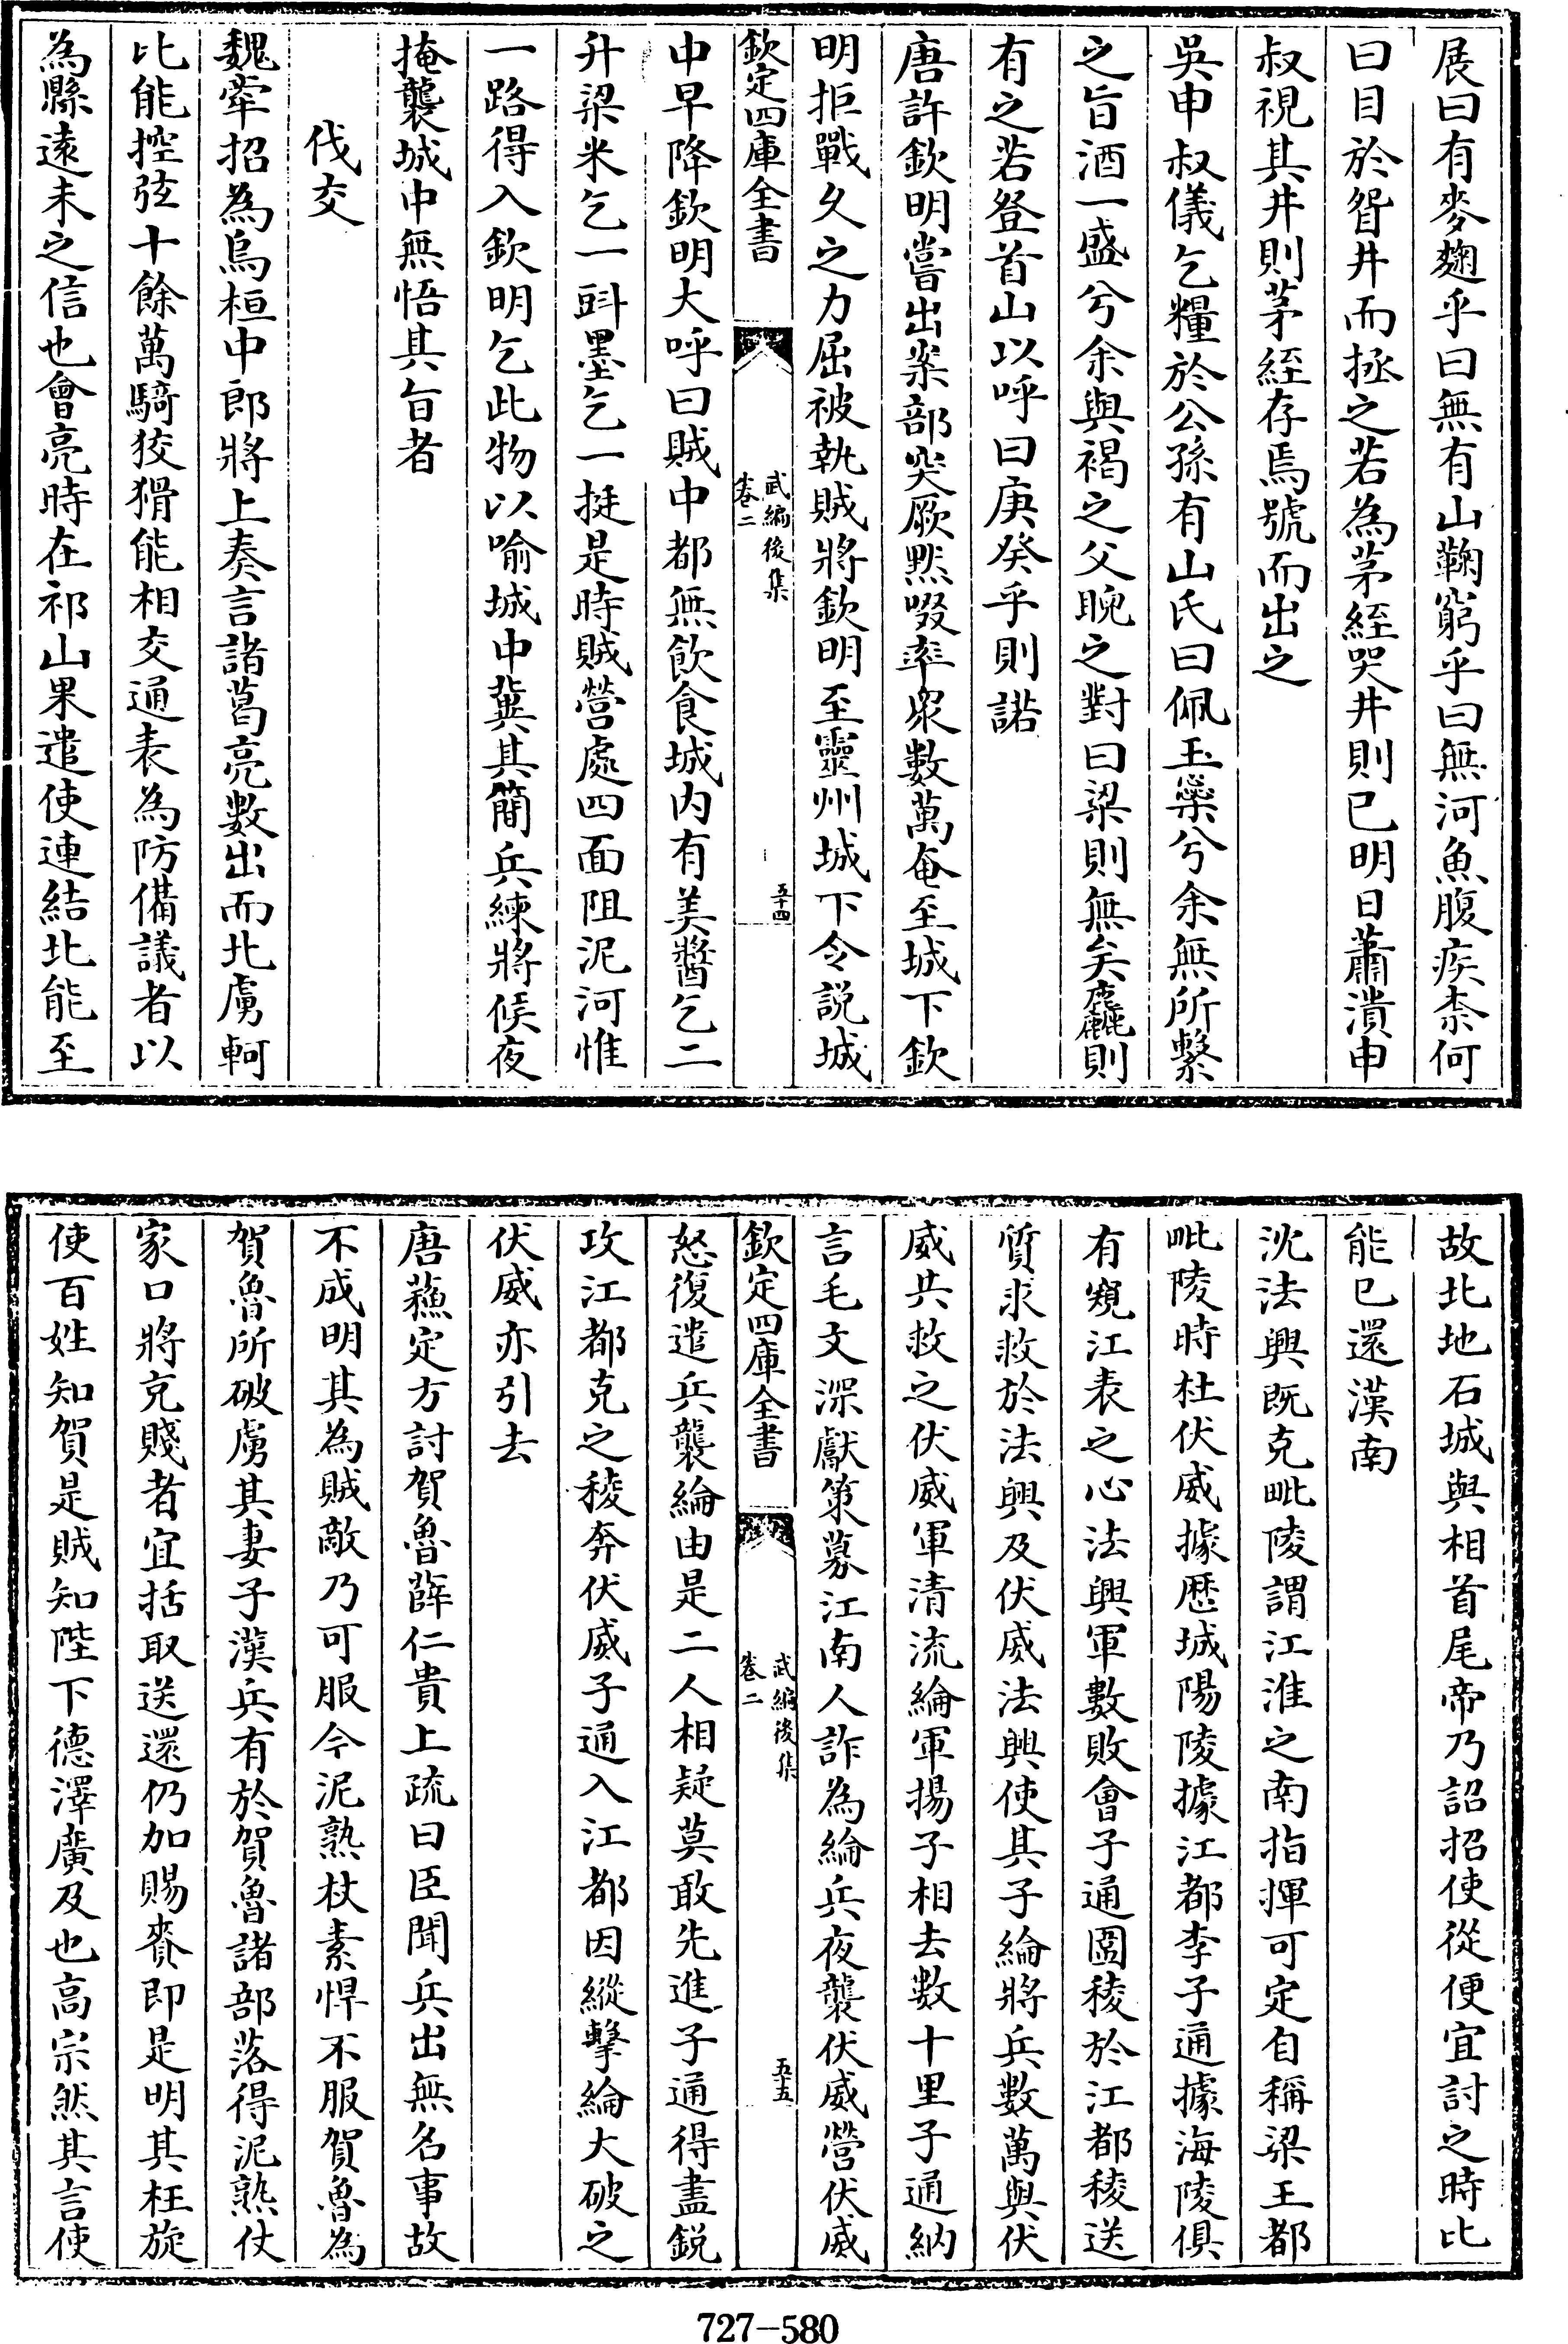 展曰有麥麴乎曰無有山鞠窮乎曰無河魚腹疾柰何
曰目於眢井而拯之若為茅絰哭井則已明日蕭潰申
叔視其井則茅絰存焉號而出之
吳申叔儀乞糧於公孫有山氏曰佩玉橤兮余無所繫
之旨酒一盛兮余與褐之父睨之對曰粱則無矣麤則
有之若登首山以呼曰庚癸乎則諾
唐許欽明嘗出案部突厥黙啜率衆數萬奄至城下欽
明拒戰久之力屈被執賊將欽明至靈州城下令説城
欽定四庫全書
武編後集
卷二
五十四
中早降欽明大呼曰賊中都無飲食城内有美醬乞二
升粱米乞一㪷墨乞一挺是時賊營處四面阻泥河惟
一路得入欽明乞此物以喻城中冀其簡兵練將候夜
掩襲城中無悟其旨者
伐交
魏牽招為烏桓中郎將上奏言諸葛亮數出而北虜軻
比能控弦十餘萬騎狡猾能相交通表為防備議者以
為縣遠未之信也會亮時在祁山果遣使連結北能至
故北地石城與相首尾帝乃詔招使從便宜討之時比
能已還漢南
沈法興既克毗陵謂江淮之南指揮可定自稱梁王都
毗陵時杜伏威據歴城陽陵據江都李子通據海陵俱
有窺江表之心法興軍數敗會子通圍稜於江都稜送
質求救於法興及伏威法興使其子綸將兵數萬與伏
威共救之伏威軍清流綸軍揚子相去數十里子通納
言毛文深獻策募江南人詐為綸兵夜襲伏威營伏威
欽定四庫全書
武編後集
卷二
五十五
怒復遣兵襲綸由是二人相疑莫敢先進子通得盡鋭
攻江都克之稜奔伏威子通入江都因縱擊綸大破之
伏威亦引去
唐蘓定方討賀魯薛仁貴上疏曰臣聞兵出無名事故
不成明其為賊敵乃可服今泥熟杖素悍不服賀魯為
賀魯所破虜其妻子漢兵有於賀魯諸部落得泥熟仗
家口將充賤者宜括取送還仍加賜賚即是明其枉旋
使百姓知賀是賊知陛下德澤廣及也高宗然其言使
727-580